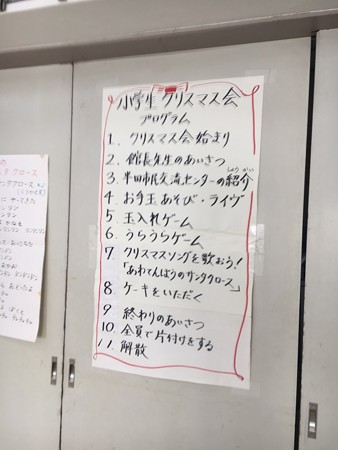 小学生 クリスマス会
プログラム
1. クリスマス会 始まり
2. 館長先生のあいさつ
しょうかい
3. 半田市民交流センターの紹介
4 お手玉あそび・ライヴ
5 玉入れゲーム
6. うらうらゲーム
7 クリスマスソングを歌おう!
「あわてんぼうのサンタクロース」
8 ケーキをいただく
9 終わりのあいさつ
10. 全員で片付けをする
11. 解散
クロース